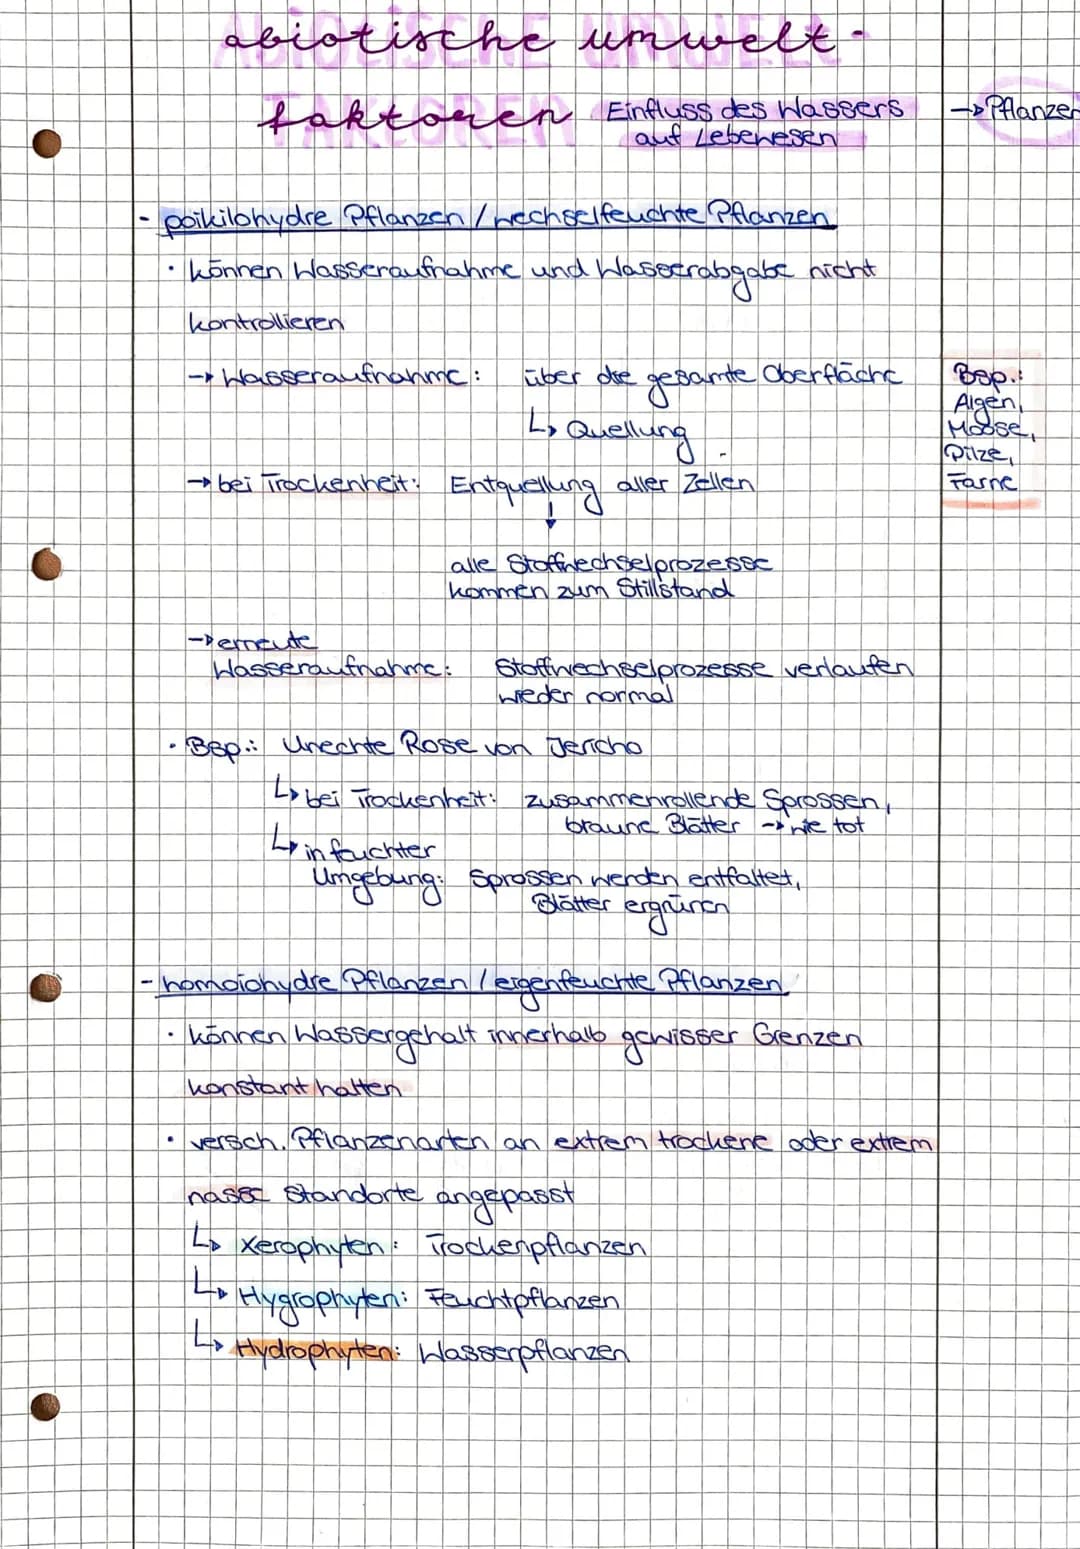 abiotische umwelt-
faktoren
Einfluss des Wassers
auf Lebewesen
→ Pflanzen
- poikilohydre Pflanzen / wechselfeuchte Pflanzen
· können Wasseraufnahme und Wasserabgabe nicht
kontrollieren
→ Wasseraufnahme: über die gesamte Oberfläche
↳ Quellung
Bsp.:
Algen,
Moose,
Pilze,
Farne
→ bei Trockenheit: Entquellung aller Zellen
↓
alle Stoffwechselprozesse
kommen zum Stillstand
→ erneute
Wasseraufnahme: Stoffwechselprozesse verlaufen
wieder normal
· Bsp.: Unechte Rose von Jericho
↳ bei Trockenheit: zusammenrollende Sprossen,
braune Blätter → wie tot
↳ in feuchter
Umgebung: Sprossen werden entfaltet,
Blätter ergrünen
- homoiohydre Pflanzen / eigenfeuchte Pflanzen
· können Wassergehalt innerhalb gewisser Grenzen
konstant halten
· versch. Pflanzenarten an extrem trockene oder extrem
nasse Standorte angepasst
↳ Xerophyten: Trockenpflanzen
↳ Hygrophyten: Feuchtpflanzen
↳ Hydrophyten: Wasserpflanzen